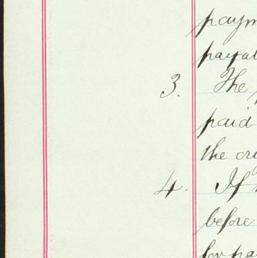 paym
payab
3. The
paid
the ori
4. If
before
for pa